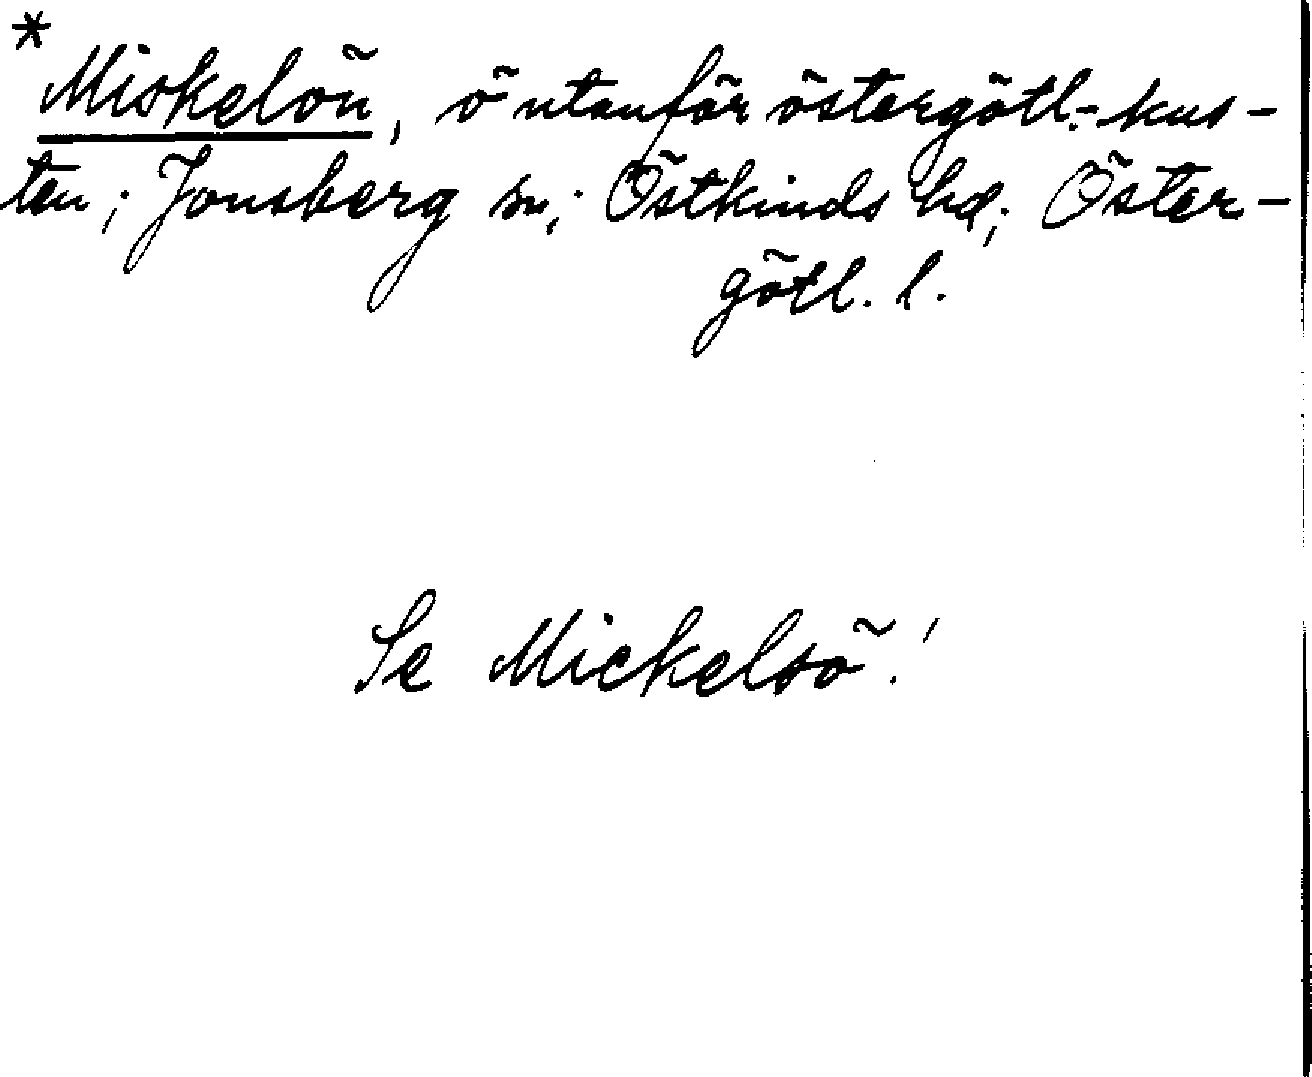 *
Miskelön, ö utanför östergötl.-kus-
ten; Jonsberg sn; Östkinds hd; Öster-
götl. l.
Se Mickelsö!